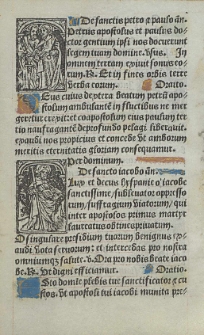 De sanctis petro & paulo añ.
Petrus apostolus et paulus doctor gentium ipsi nos docuerunt
legem tuam domine. Vsus. In
omnem terram exiuit sonus eorum. R. Et in fines orbis terre
verba eorum. Oratio.
Deus cuius dextera beatum petrũ apostolum
ambulantẽ in fluctibus ne mergeretur
erexit: et coapostolum eius paulum tertio
naufragantẽ de profundo pelagi liberauit.
exaudi nos propicius et concede vt amborum
meritis eternitatis gloriam consequamur.
Per dominum.
De sancto iacobo añ.
Lux et decus hyspanie o iacobe
sanctissime,
suffragium viatorum, qui
inter apostolos primus martyr
laureatus
O singulare presidium tuorum benignus exaudi
vota seruorum: et intercede pro nostra
omniumq; salute. v. Ora pro nobis beate iacobe.
R. Vt digni efficiamur. Oratio.
Esto domine plebis tue sanctificator & custos,
vt apostoli tui iacobi munita pre-